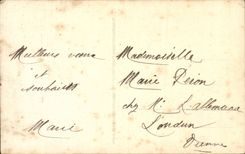 Meilleurs vœux
et
souhaits
Marie
Mademoiselle
Marie Drion
chez Mr Lallemand
Loudun
Vienne